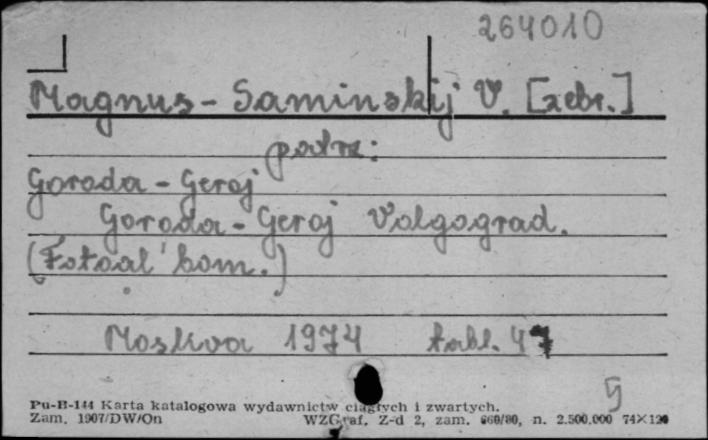 264010
Magnus-Saminskij V. [zebr.]
patrz:
Goroda-Geroj
Goroda-Geroj Volgograd.
(Fotoal'bom.)
Moskva 1974 tabl. 47
5
Pu-B-144 Karta katalogowa wydawnictw ciągłych i zwartych.
Zam. 1907/DW/On WZGraf. Z-d 2, zam. 660/80, n. 2.500.000 74×120